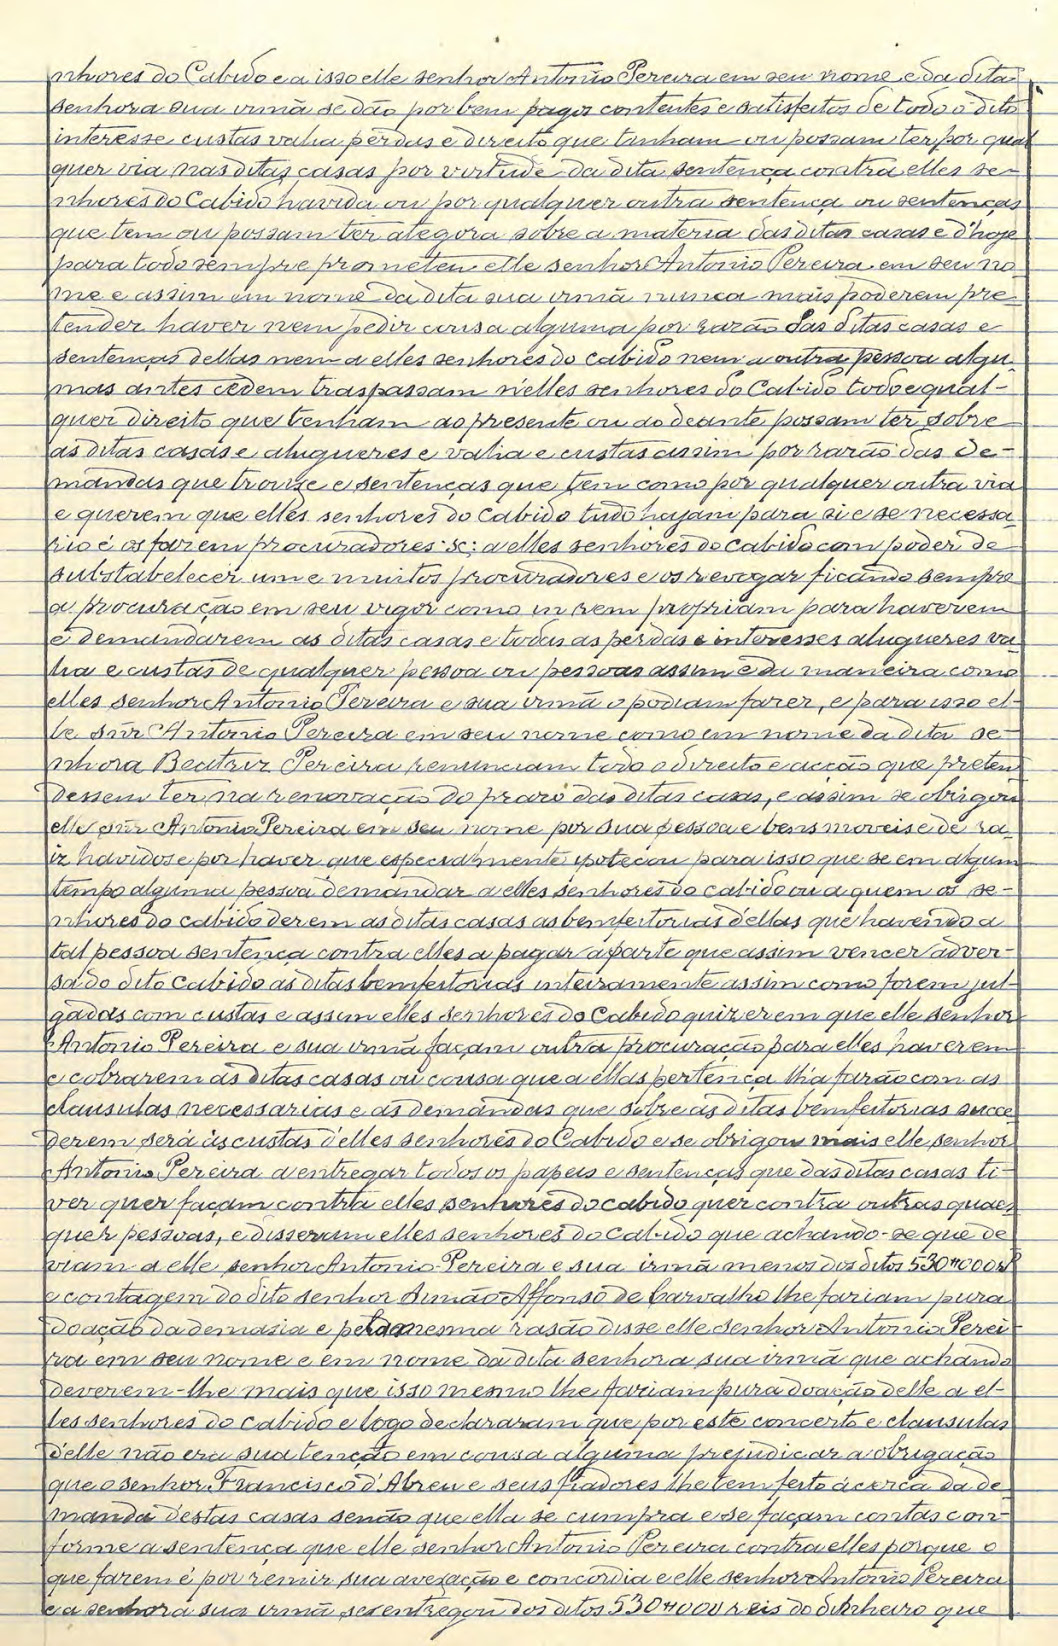 nhores do Cabido e a isso elle senhor Antonio Pereira em seu nome e da dita
senhora sua irmã se dão por bem pagos contentes e satisfeitos de todo o dito
interesse custas valia perdas e direito que tinham ou possam ter por qual
quer via nas ditas casas por virtude da dita sentença contra elles se-
nhores do Cabido havida ou por qualquer outra sentença ou sentenças
que tem ou possam ter ategora sobre a materia das ditas casas e d'hoje
para todo sempre prometeu elle senhor Antonio Pereira em seu no
me e assim em nome da dita sua irmã nunca mais poderem pre-
tender haver nem pedir cousa alguma por razão das ditas casas e
sentenças dellas nem a elles senhores do Cabido nem a outra pessoa algu-
mas antes cedem traspassam n'elles senhores do Cabido todo e qual-
quer direito que tenham ao presente ou ao deante possam ter sobre
as ditas casas e alugueres e valia e custas assim por razão das de-
mandas que trouxe e sentenças que tem como por qualquer outra via
e querem que elles senhores do Cabido tudo hajam para si e se necessa
rio é os fazem procuradores sc: a elles senhores do Cabido com poder de
substabelecer um e muitos procuradores e os revogar ficando sempre
a procuração em seu vigor como in rem propriam para haverem
e demandarem as ditas casas e todas as perdas e interesses alugueres va
lia e custas de qualquer pessoa ou pessoas assim e da maneira como
elles senhor Antonio Pereira e sua irmã o podiam fazer, e para isso el-
le snr Antonio Pereira em seu nome como em nome da dita se-
nhora Beatriz Pereira renunciam todo o direito e acção que preten
dessem ter na renovação do prazo das ditas casas, e assim se obrigou
elle snr Antonio Pereira em seu nome por sua pessoa e bens moveis e de ra-
iz havidos e por haver que especialmente ipotecou para isso que se em algum
tempo alguma pessoa demandar a elles senhores do cabido ou a quem os se-
nhores do cabido derem as ditas casas as bemfeitorias d'ellas que havendo a
tal pessoa sentença contra elles a pagar á parte que assim vencer adver-
sa do dito Cabido as ditas bemfeitorias inteiramente assim como forem jul-
gadas com custas e assim elles senhores do Cabido quizerem que elle senhor
Antonio Pereira e sua irmã façam outra procuração para elles haverem
e cobrarem as ditas casas ou cousa que a ellas pertença lh'a farão com as
clausulas necessarias e as demandas que sobre as ditas bemfeitorias succe
derem será ás custas d'elles senhores do Cabido e se obrigou mais elle senhor
Antonio Pereira a entregar todos os papeis e sentenças que das ditas casas ti-
ver quer façam contra elles senhores do cabido quer contra outras quaes
quer pessoas, e disseram elles senhores do Cabido que achando-se que de
viam a elle senhor Antonio Pereira e sua irmã menos dos ditos 530#000
e contagem do dito senhor Simão Affonso de Carvalho lhe fariam pura
doação da demasia e pela mesma rasão disse elle senhor Antonio Perei
ra em seu nome e em nome da dita senhora sua irmã que achando
deverem-lhe mais que isso mesmo lhe fariam pura doação delle a el-
les senhores do cabido e logo declararam que por este concerto e clausulas
d'elle não era sua tenção em cousa alguma prejudicar a obrigação
que o senhor Francisco d'Abreu e seus fiadores lhe tem feito ácerca da de
manda d'estas casas senão que ella se cumpra e se façam contas con-
forme a sentença que elle senhor Antonio Pereira contra elles porque o
que fazem é por remir sua avexação e concordia e elle senhor Antonio Pereira
e a senhora sua irmã se entregou dos ditos 530#000 reis do dinheiro que